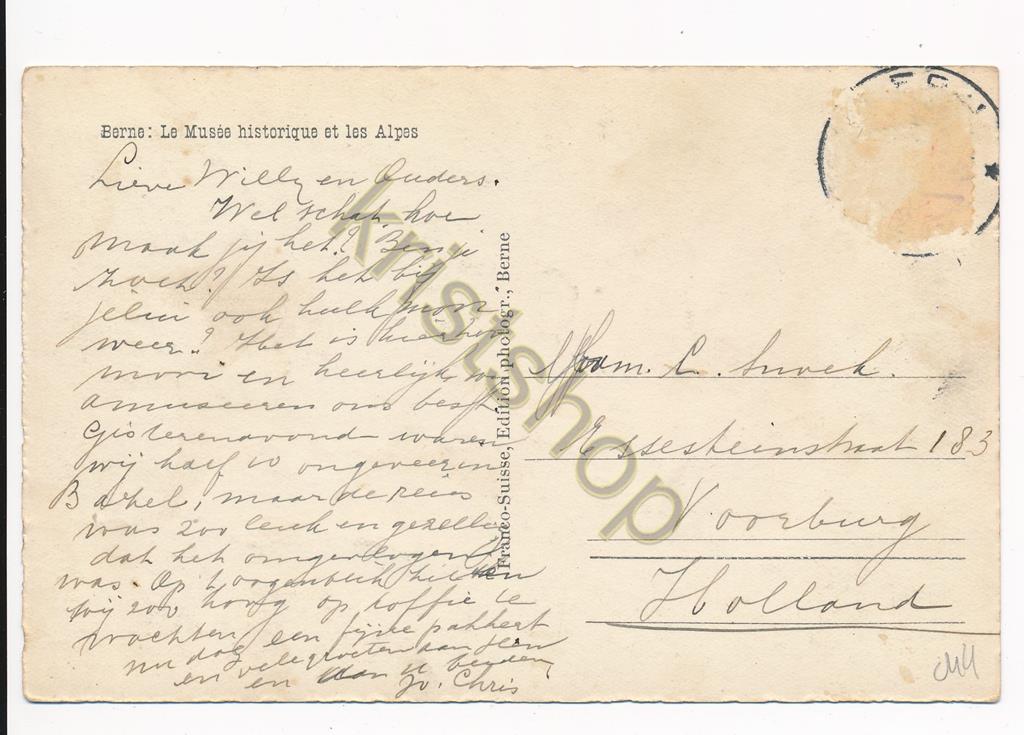 Berne: Le Musée historique et les Alpes
Lieve Willy en Ouders.
Wel schat, hoe
maak jij het? Ben je
zoet? Is het bij
jelui ook heel mooi
weer? Het is hier
mooi en heerlijk, we
amuseeren ons best
Gisterenavond waren
wij half 10 ongeveer in
Bazel, maar de reis
was zoo leuk en gezellig
dat het omgevlogen
was. Op
wij zoo hoog op koffie te
wachten, een fijne pakkert
nu dag vele groeten aan
en en aan u beyden
Jo. Chris
Franco-Suisse, Edition photogr., Berne
Mam. C. Snoek.
Essesteinstraat 183
Voorburg
Holland
kristshop